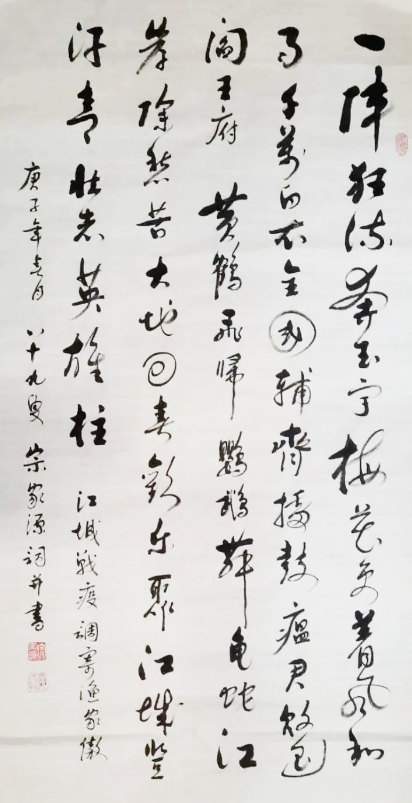 一阵狂流奔玉宇梅花更着风和
雨千万白衣全国辅齐擂鼓瘟君
阎王府 黄鹤飞归鹦鹉舞龟蛇江
岸除愁苦大地回春欢乐聚江城竖
汗青壮志英雄柱 江城战疫调寄渔家傲
庚子年月八十九叟宗家源词并书